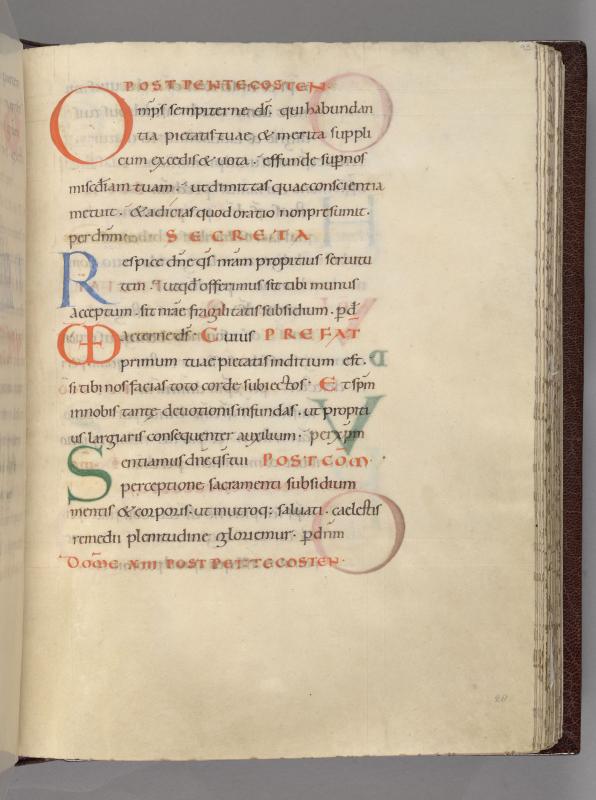 POST PENTECOSTEN.
Omps sempiterne ds, qui habundan
tia pietatis tuae & merita suppli
cum excedis & uota. effunde supnos
miscdiam tuam. ut dimittas quae conscientia
metuit. & adicias quod oratio non presumit.
per dnm. SECRETA
Respice dne qs nram propitius seruitu
tem. ut qd offerimus sit tibi munus
acceptum. sit nrae fragilitatis subsidium. pd
aeterne ds. Cuius PREFAT
primum tuae pietatis inditium est.
si tibi nos facias toto corde subiectos. Et spm
in nobis tante deuotionis infundas. ut propiti
us largiaris consequenter auxilium. per xpm
Sentiamus dne qs tui POSTCOM.
perceptione sacramenti subsidium
mentis & corporis. ut in utroq; saluati. caelestis
remedii plenitudine gloriemur. p dnm
DOME XIII POST PENTECOSTEN.